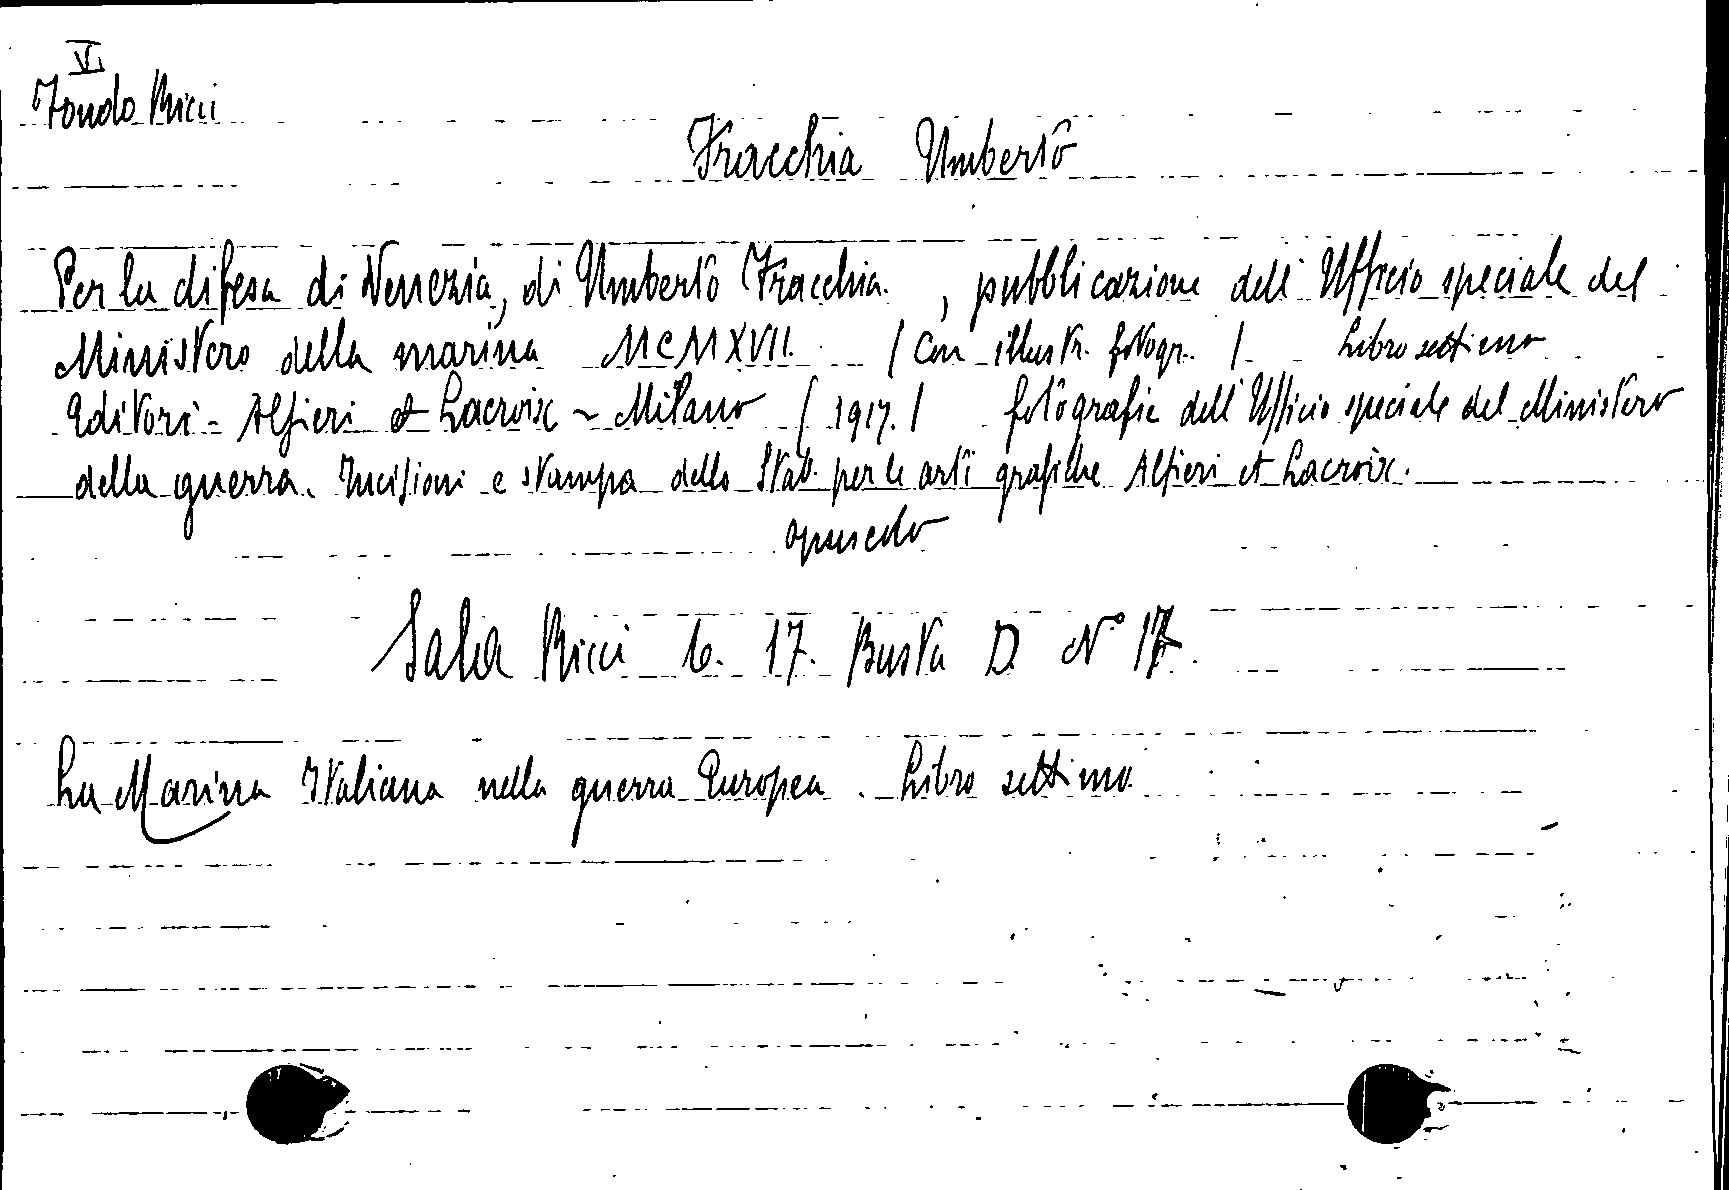 VI
Fondo Ricci
Fracchia Umberto
Per la difesa di Venezia, di Umberto Fracchia. , pubblicazione dell'Ufficio speciale del
Ministero della marina MCMXVII. / Con illustr. fotogr. / Libro settimo
Editori - Alfieri et Lacroix - Milano / 1917. / fotografie dell'Ufficio speciale del Ministero
della guerra. Incisioni e stampa dello Stab. per le arti grafiche Alfieri et Lacroix.
opuscolo
Sala Ricci b. 17. Busta D. N° 17.
La Marina Italiana nella guerra Europea. Libro settimo